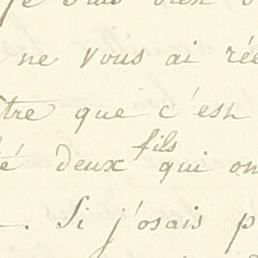 ne vous ai rée
tre que c'est
é deux fils qui on
. Si j'osais p